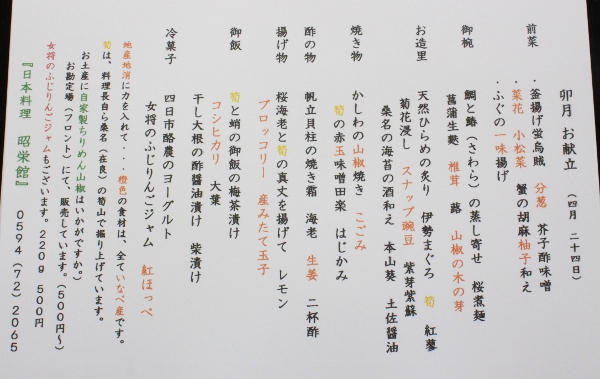 卯月 お献立 (四月 二十四日)
前菜 ・釜揚げ蛍烏賊 分葱 芥子酢味噌
・菜花 小松菜 蟹の胡麻柚子和え
・ふぐの一味揚げ
御椀 鯛と鰆(さわら)の蒸し寄せ 桜煮麺
菖蒲生麩 椎茸 蕗 山椒の木の芽
お造里 天然ひらめの炙り 伊勢まぐろ 筍 紅蓼
菊花浸し スナップ豌豆 紫芽紫蘇
桑名の海苔の酒和え 本山葵 土佐醤油
焼き物 かしわの山椒焼き こごみ
筍の赤玉味噌田楽 はじかみ
酢の物 帆立貝柱の焼き霜 海老 生姜 二杯酢
揚げ物 桜海老と筍の真丈を揚げて レモン
ブロッコリー 産みたて玉子
御飯 筍と蛸の御飯の梅茶漬け
コシヒカリ 大葉
干し大根の酢醤油漬け 柴漬け
冷菓子 四日市酪農のヨーグルト
女将のふじりんごジャム 紅ほっぺ
地産地消に力を入れて・・・橙色の食材は、全ていなべ産です。
筍は、料理長自ら桑名(在良)の筍山で掘り上げています。
お土産に自家製ちりめん山椒はいかがですか。
お勘定場(フロント)にて、販売しています。(500円～)
女将のふじりんごジャムもございます。220g 500円
『日本料理 昭栄館』 0594(72)2065